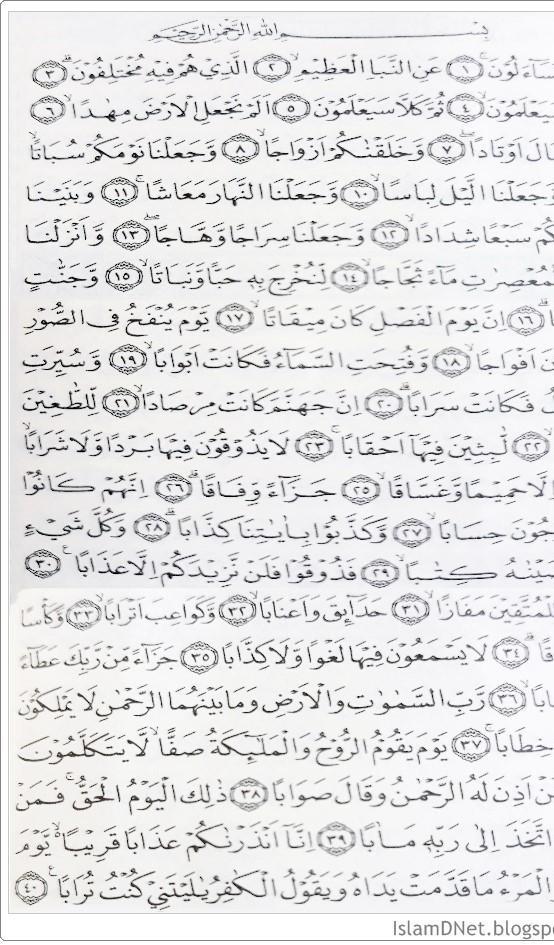 بِسْمِ اللهِ الرَّحْمٰنِ الرَّحِيْمِ
سَآءَلُوْنَ ۝١ عَنِ النَّبَاِ الْعَظِيْمِ ۝٢ الَّذِيْ هُمْ فِيْهِ مُخْتَلِفُوْنَ ۝٣
يَعْلَمُوْنَ ۝٤ ثُمَّ كَلَّا سَيَعْلَمُوْنَ ۝٥ اَلَمْ نَجْعَلِ الْاَرْضَ مِهٰدًا ۝٦
بَالَ اَوْتَادًا ۝٧ وَّخَلَقْنٰكُمْ اَزْوَاجًا ۝٨ وَّجَعَلْنَا نَوْمَكُمْ سُبَاتًا
وَّجَعَلْنَا الَّيْلَ لِبَاسًا ۝١٠ وَّجَعَلْنَا النَّهَارَ مَعَاشًا ۝١١ وَبَنَيْنَا
كُمْ سَبْعًا شِدَادًا ۝١٢ وَّجَعَلْنَا سِرَاجًا وَّهَّاجًا ۝١٣ وَّاَنْزَلْنَا
لْمُعْصِرٰتِ مَآءً ثَجَّاجًا ۝١٤ لِّنُخْرِجَ بِهٖ حَبًّا وَّنَبَاتًا ۝١٥ وَّجَنّٰتٍ
ا ۝١٦ اِنَّ يَوْمَ الْفَصْلِ كَانَ مِيْقَاتًا ۝١٧ يَّوْمَ يُنْفَخُ فِى الصُّوْرِ
نَ اَفْوَاجًا ۝١٨ وَّفُتِحَتِ السَّمَآءُ فَكَانَتْ اَبْوَابًا ۝١٩ وَّسُيِّرَتِ
لُ فَكَانَتْ سَرَابًا ۝٢٠ اِنَّ جَهَنَّمَ كَانَتْ مِرْصَادًا ۝٢١ لِّلطَّغِيْنَ
۝٢٢ لّٰبِثِيْنَ فِيْهَآ اَحْقَابًا ۝٢٣ لَا يَذُوْقُوْنَ فِيْهَا بَرْدًا وَّلَا شَرَابًا
اِلَّا حَمِيْمًا وَّغَسَّاقًا ۝٢٥ جَزَآءً وِّفَاقًا ۝٢٦ اِنَّهُمْ كَانُوْا
جُوْنَ حِسَابًا ۝٢٧ وَّكَذَّبُوْا بِاٰيٰتِنَا كِذَّابًا ۝٢٨ وَكُلَّ شَيْءٍ
يْنٰهُ كِتٰبًا ۝٢٩ فَذُوْقُوْا فَلَنْ نَّزِيْدَكُمْ اِلَّا عَذَابًا ۝٣٠
لْمُتَّقِيْنَ مَفَازًا ۝٣١ حَدَآئِقَ وَاَعْنَابًا ۝٣٢ وَّكَوَاعِبَ اَتْرَابًا ۝٣٣ وَّكَاْسًا
قًا ۝٣٤ لَا يَسْمَعُوْنَ فِيْهَا لَغْوًا وَّلَا كِذّٰبًا ۝٣٥ جَزَآءً مِّنْ رَّبِّكَ عَطَآءً
ابًا ۝٣٦ رَّبِّ السَّمٰوٰتِ وَالْاَرْضِ وَمَا بَيْنَهُمَا الرَّحْمٰنِ لَا يَمْلِكُوْنَ
خِطَابًا ۝٣٧ يَوْمَ يَقُوْمُ الرُّوْحُ وَالْمَلٰٓئِكَةُ صَفًّا لَّا يَتَكَلَّمُوْنَ
نْ اَذِنَ لَهُ الرَّحْمٰنُ وَقَالَ صَوَابًا ۝٣٨ ذٰلِكَ الْيَوْمُ الْحَقُّ فَمَنْ
اتَّخَذَ اِلٰى رَبِّهٖ مَاٰبًا ۝٣٩ اِنَّآ اَنْذَرْنٰكُمْ عَذَابًا قَرِيْبًا يَّوْمَ
الْمَرْءُ مَا قَدَّمَتْ يَدٰهُ وَيَقُوْلُ الْكٰفِرُ يٰلَيْتَنِيْ كُنْتُ تُرٰبًا ۝٤٠
IslamDNet.blogsp